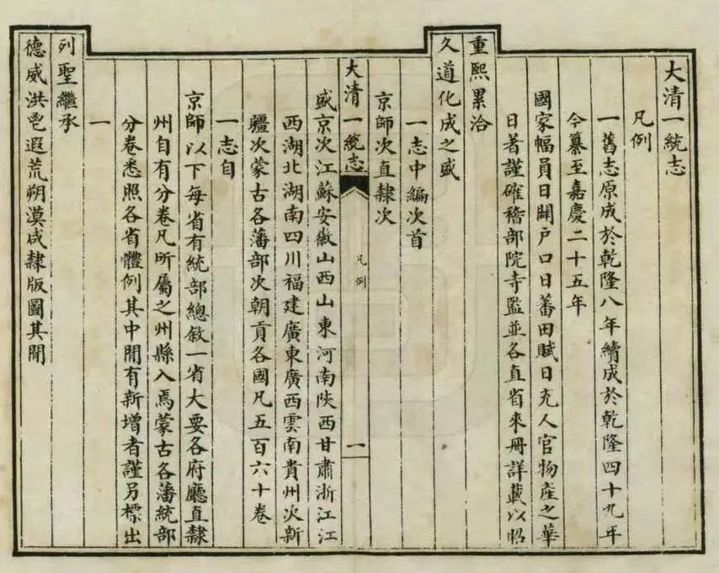 大清一統志
凡例
一舊志原成於乾隆八年續成於乾隆四十九年
今纂至嘉慶二十五年
國家幅員日闢戶口日蕃田賦日充人官物產之華
日著謹確稽部院寺監並各直省來冊詳載以昭
重熙累洽
久道化成之盛
一志中編次首
京師次直隸次
大清一統志
凡例
一
盛京次江蘇安徽山西山東河南陝西甘肅浙江江
西湖北湖南四川福建廣東廣西雲南貴州次新
疆次蒙古各藩部次朝貢各國凡五百六十卷
一志自
京師以下每省有統部總敘一省大要各府廳直隸
州自有分卷凡所屬之州縣入焉蒙古各藩統部
分卷悉照各省體例其中間有新增者謹另標出
一
列聖繼承
德威洪鬯遐荒朔漠咸隸版圖其間